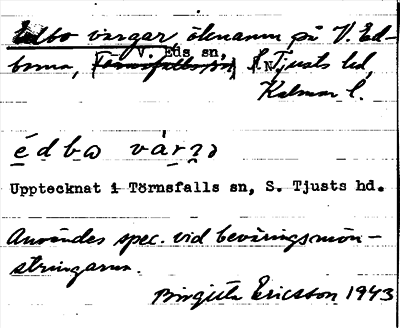 Edbo vargar öknamn på V. Ed-
V. Eds sn,
borna, Törnsfalls sn, N. Tjusts hd,
Kalmar l.
édba várgɔ
Upptecknat i Törnsfalls sn, S. Tjusts hd.
Användes spec. vid beväringsmön-
stringarna.
Birgitta Ericsson 1943